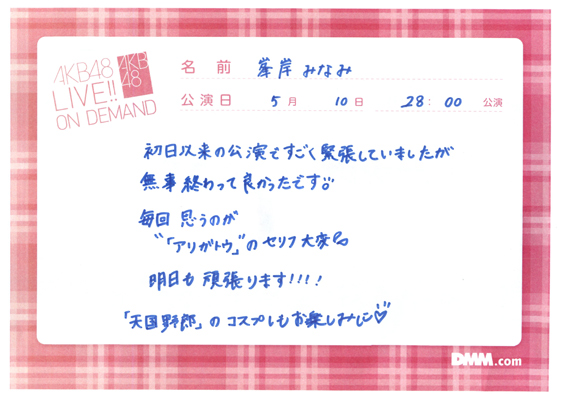 AKB48
LIVE!!
ON DEMAND
AKB
48
名 前 峯岸 みなみ
公演日 5月 10日 28:00 公演
初日以来の公演ですごく緊張していましたが
無事終わって良かったです
毎回 思うのが
“「アリガトウ」”のセリフ大変
明日も頑張ります!!!!
「天国野郎」のコスプレもお楽しみに♡
DMM.com